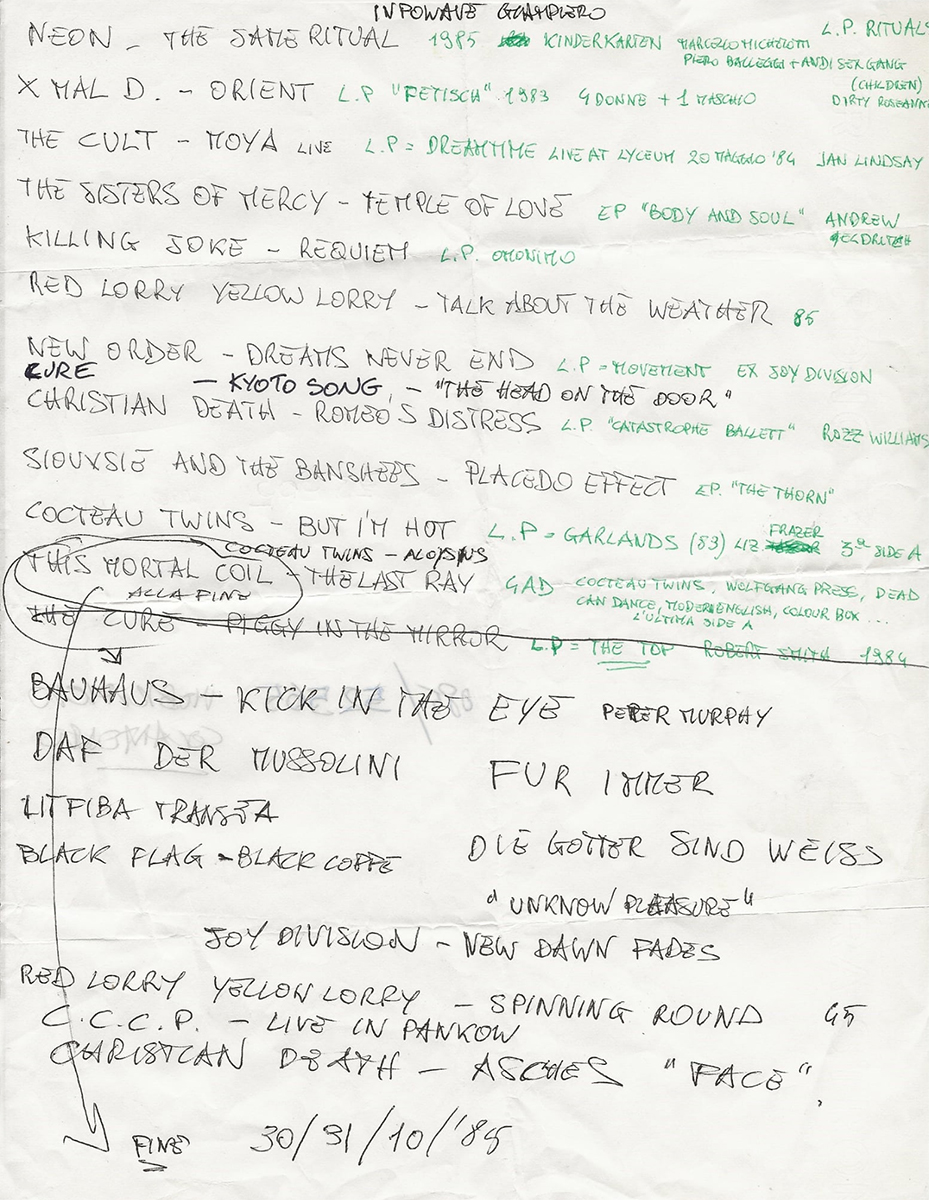 INFOWAVE GIAMPIERO
NEON - THE SAME RITUAL 1985 KINDERKARTEN MARCELLO MICHELOTTI L.P. RITUALS
PIERO BALLEGGI + ANDI SEX GANG
(CHILDREN)
X MAL D. - ORIENT L.P "FETISCH" 1983 4 DONNE + 1 MASCHIO DIRTY ROSEANNE
THE CULT - MOYA LIVE L.P = DREAMTIME LIVE AT LYCEUM 20 MAGGIO '84 JAN LINDSAY
THE SISTERS OF MERCY - TEMPLE OF LOVE EP "BODY AND SOUL" ANDREW
ELDRITCH
KILLING JOKE - REQUIEM L.P. OMONIMO
RED LORRY YELLOW LORRY - TALK ABOUT THE WEATHER 85
NEW ORDER - DREAMS NEVER END L.P = MOVEMENT EX JOY DIVISION
CURE - KYOTO SONG - "THE HEAD ON THE DOOR"
CHRISTIAN DEATH - ROMEO'S DISTRESS L.P. "CATASTROPHE BALLETT" ROZZ WILLIAMS
SIOUXSIE AND THE BANSHEES - PLACEDO EFFECT EP. "THE THORN"
COCTEAU TWINS - BUT I'M HOT L.P = GARLANDS (83) LIZ FRAZER 3ª SIDE A
COCTEAU TWINS - ALOYSIUS
THIS MORTAL COIL - THE LAST RAY 4AD COCTEAU TWINS, WOLFGANG PRESS, DEAD
ALLA FINE CAN DANCE, MODERN ENGLISH, COLOUR BOX ...
L'ULTIMA SIDE A
THE CURE - PIGGY IN THE MIRROR L.P = THE TOP ROBERT SMITH 1984
BAUHAUS - KICK IN THE EYE PETER MURPHY
DAF DER MUSSOLINI FUR IMMER
LITFIBA TRANSEA
BLACK FLAG - BLACK COFFE DIE GOTTER SIND WEISS
"UNKNOW PLEASURE"
JOY DIVISION - NEW DAWN FADES
RED LORRY YELLOW LORRY - SPINNING ROUND 45
C.C.C.P. - LIVE IN PANKOW
CHRISTIAN DEATH - ASCHES "FACE"
FINE 30/31/10/'85